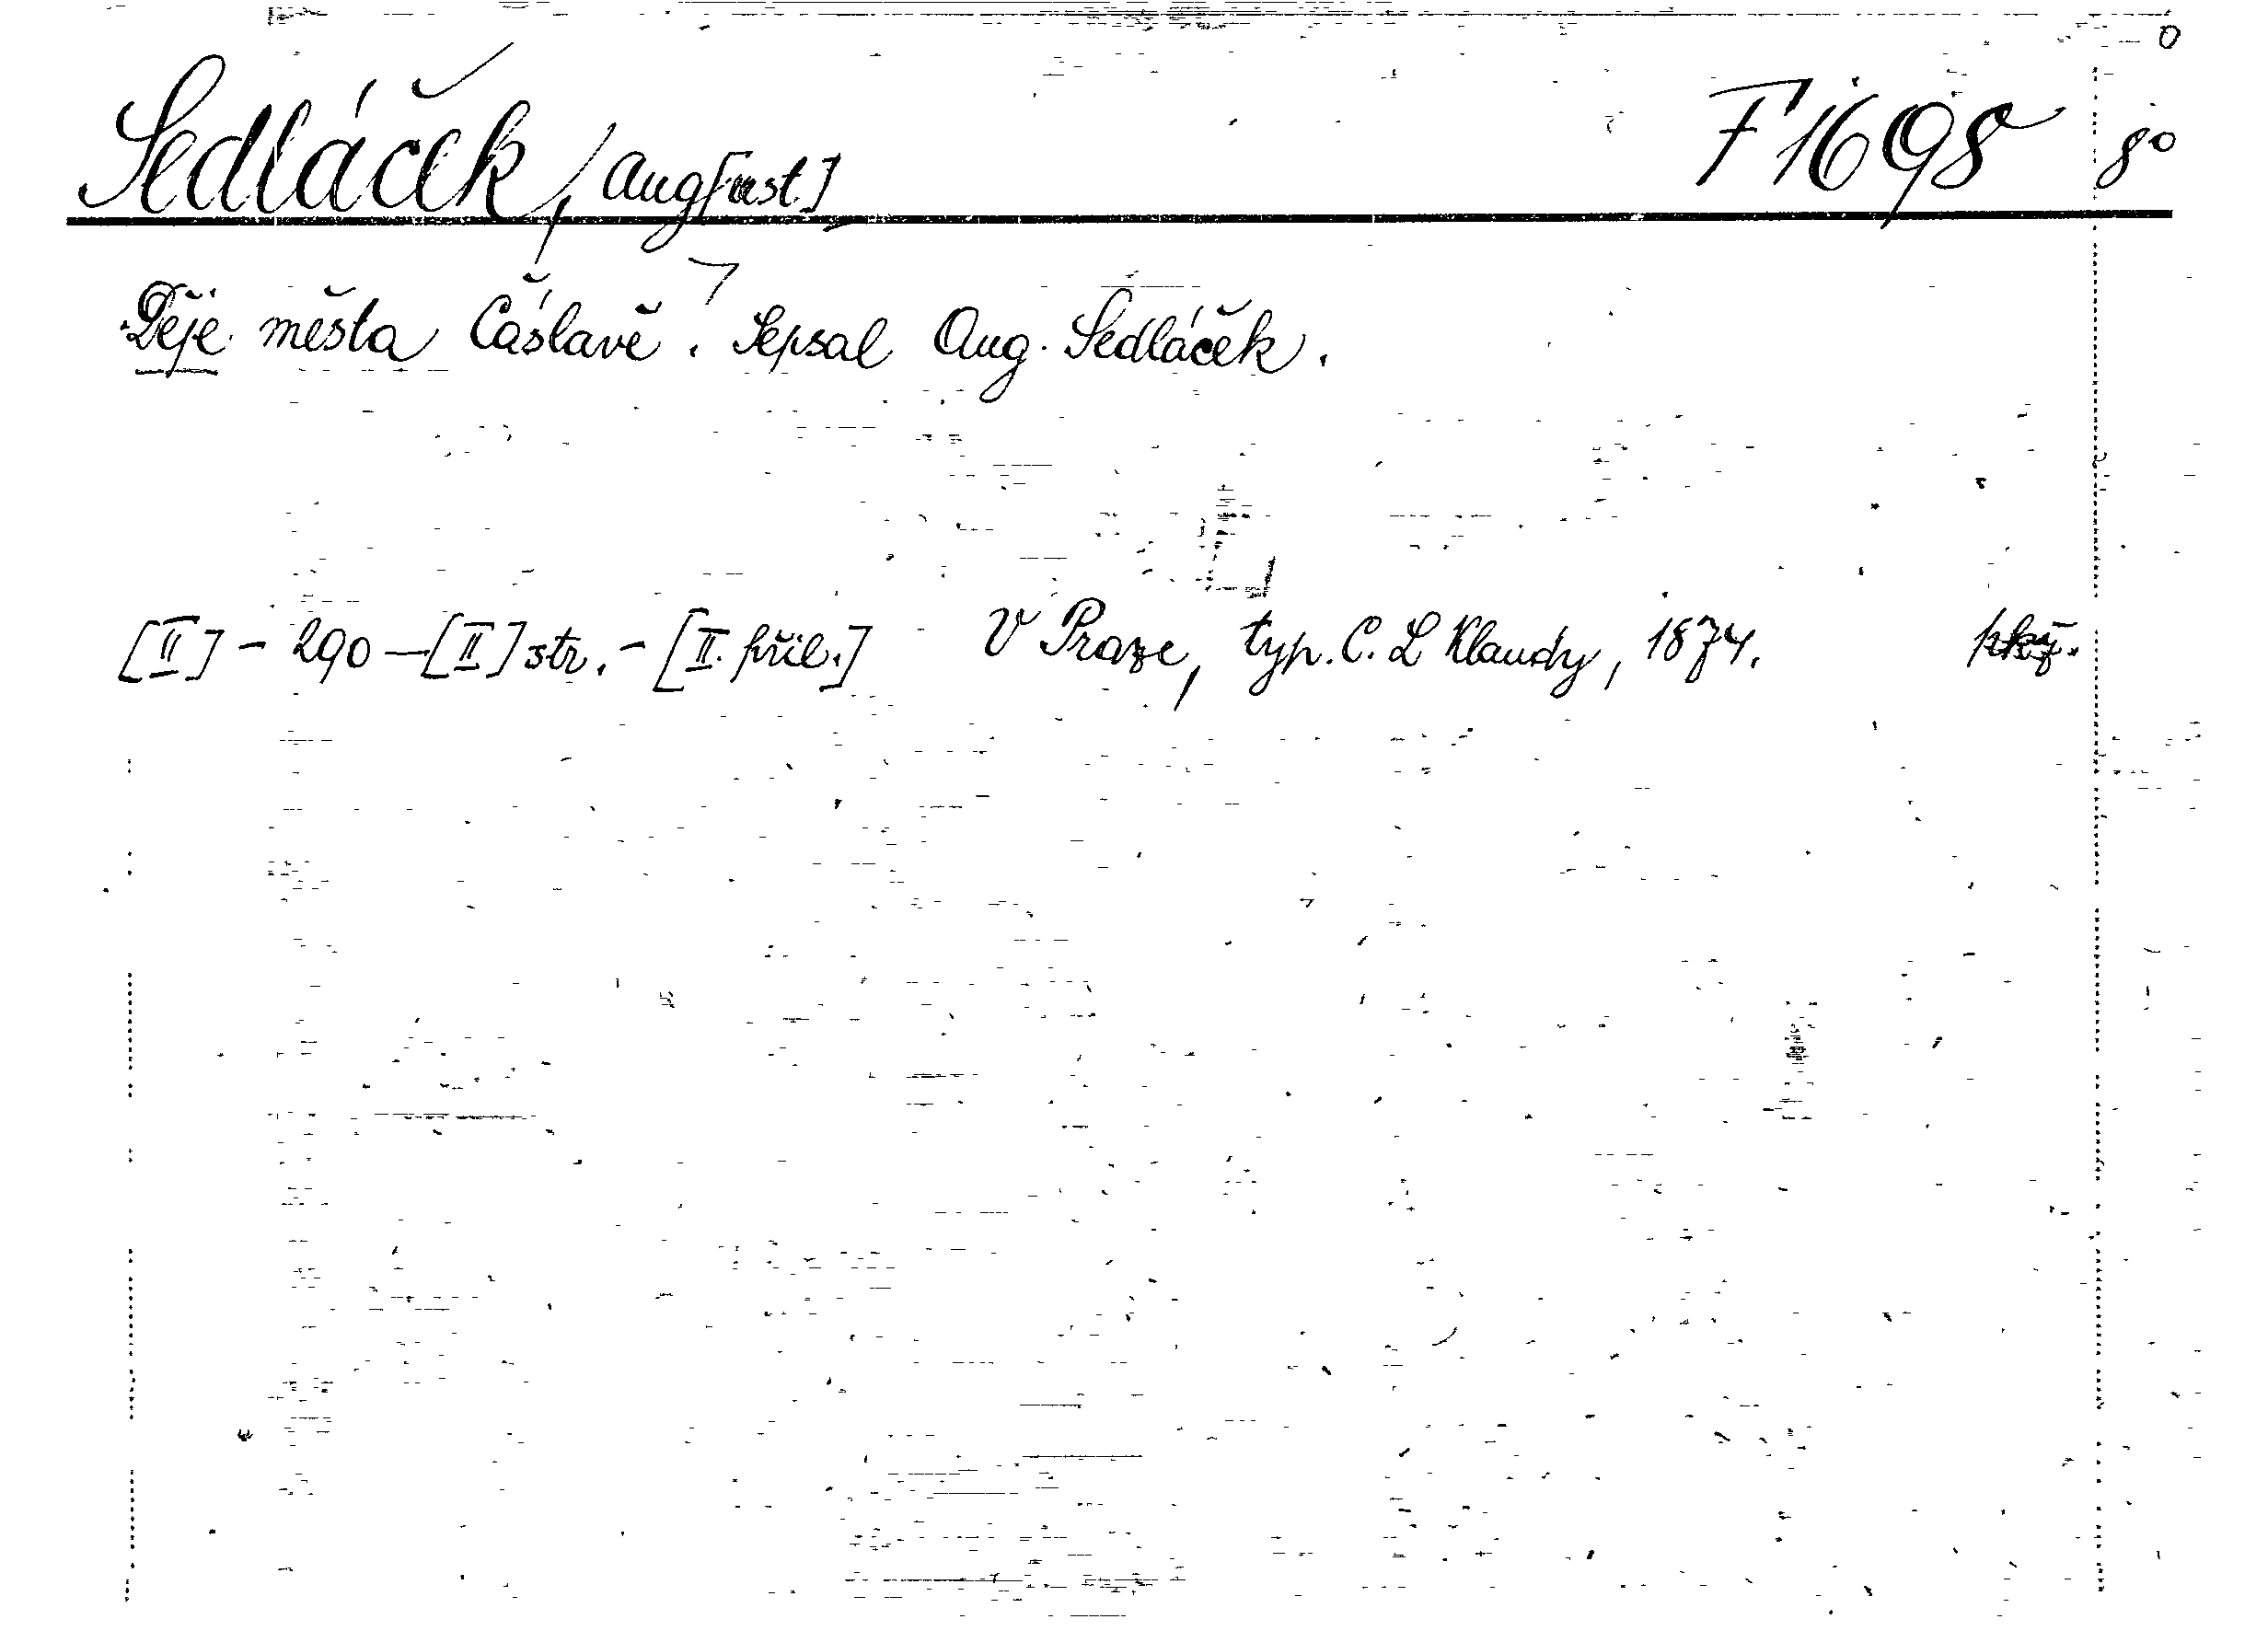 Sedláček, Aug[ust.] F 1698 8°
Děje města Čáslavě. Sepsal Aug. Sedláček.
[II] - 290 - [II] str. - [II. příl.] V Praze, typ. C. L Klaudy, 1874.